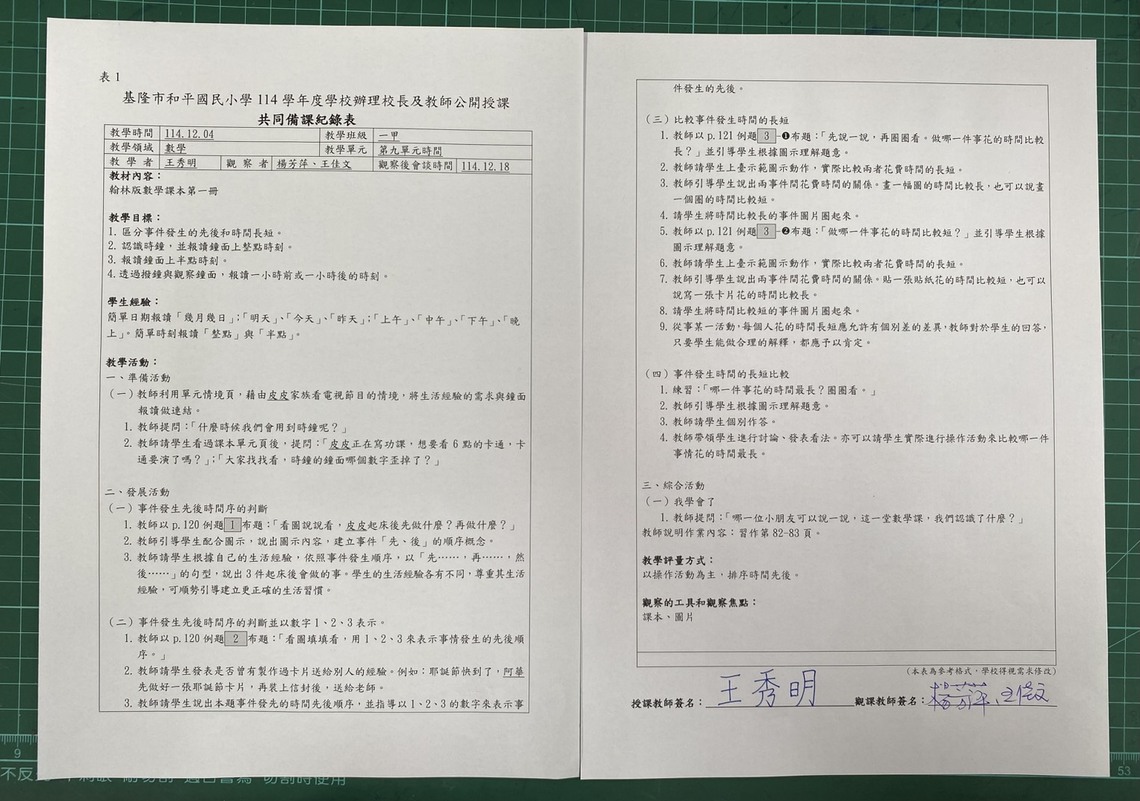 表 1
基隆市和平國民小學 114 學年度學校辦理校長及教師公開授課
共同備課紀錄表
教學時間 114.12.04 教學班級 一甲
教學領域 數學 教學單元 第九單元時間
教 學 者 王秀明 觀 察 者 楊芳萍、王佳文 觀察後會談時間 114.12.18
教材內容：
翰林版數學課本第一冊
教學目標：
1. 區分事件發生的先後和時間長短。
2. 認識時鐘，並報讀鐘面上整點時刻。
3. 報讀鐘面上半點時刻。
4. 透過撥鐘與觀察鐘面，報讀一小時前或一小時後的時刻。
學生經驗：
簡單日期報讀「幾月幾日」；「明天」、「今天」、「昨天」；「上午」、「中午」、「下午」、「晚
上」。簡單時刻報讀「整點」與「半點」。
教學活動：
一、準備活動
（一）教師利用單元情境頁，藉由皮皮家族看電視節目的情境，將生活經驗的需求與鐘面
報讀做連結。
1. 教師提問：「什麼時候我們會用到時鐘呢？」
2. 教師請學生看過課本單元頁後，提問：「皮皮正在寫功課，想要看 6 點的卡通，卡
通要演了嗎？」；「大家找找看，時鐘的鐘面哪個數字歪掉了？」
二、發展活動
（一）事件發生先後時間序的判斷
1. 教師以 p.120 例題 1 布題：「看圖說說看，皮皮起床後先做什麼？再做什麼？」
2. 教師引導學生配合圖示，說出圖示內容，建立事件「先、後」的順序概念。
3. 教師請學生根據自己的生活經驗，依照事件發生順序，以「先……，再……，然
後……」的句型，說出 3 件起床後會做的事。學生的生活經驗各有不同，尊重其生活
經驗，可順勢引導建立更正確的生活習慣。
（二）事件發生先後時間序的判斷並以數字 1、2、3 表示。
1. 教師以 p.120 例題 2 布題：「看圖填填看，用 1、2、3 來表示事情發生的先後順
序。」
2. 教師請學生發表是否曾有製作過卡片送給別人的經驗。例如：耶誕節快到了，阿華
先做好一張耶誕節卡片，再裝上信封後，送給老師。
3. 教師請學生說出本題事件發先的時間先後順序，並指導以 1、2、3 的數字來表示事
件發生的先後。
（三）比較事件發生時間的長短
1. 教師以 p.121 例題 3 -❶布題：「先說一說，再圈圈看。做哪一件事花的時間比較
長？」並引導學生根據圖示理解題意。
2. 教師請學生上臺示範圖示動作，實際比較兩者花費時間的長短。
3. 教師引導學生說出兩事件間花費時間的關係。畫一幅圖的時間比較長，也可以說畫
一個圓的時間比較短。
4. 請學生將時間比較長的事件圖片圈起來。
5. 教師以 p.121 例題 3 -❷布題：「做哪一件事花的時間比較短？」並引導學生根據
圖示理解題意。
6. 教師請學生上臺示範圖示動作，實際比較兩者花費時間的長短。
7. 教師引導學生說出兩事件間花費時間的關係。貼一張貼紙花的時間比較短，也可以
說寫一張卡片花的時間比較長。
8. 請學生將時間比較短的事件圖片圈起來。
9. 從事某一活動，每個人花的時間長短應允許有個別差的差異，教師對於學生的回答，
只要學生能做合理的解釋，都應予以肯定。
（四）事件發生時間的長短比較
1. 練習：「哪一件事花的時間最長？圈圈看。」
2. 教師引導學生根據圖示理解題意。
3. 教師請學生個別作答。
4. 教師帶領學生進行討論、發表看法。亦可以請學生實際進行操作活動來比較哪一件
事情花的時間最長。
三、綜合活動
（一）我學會了
1. 教師提問：「哪一位小朋友可以說一說，這一堂數學課，我們認識了什麼？」
教師說明作業內容：習作第 82-83 頁。
教學評量方式：
以操作活動為主，排序時間先後。
觀察的工具和觀察焦點：
課本、圖片
（本表為參考格式，學校得視需求修改）
授課教師簽名：王秀明 觀課教師簽名：楊芳萍、王佳文
9
53